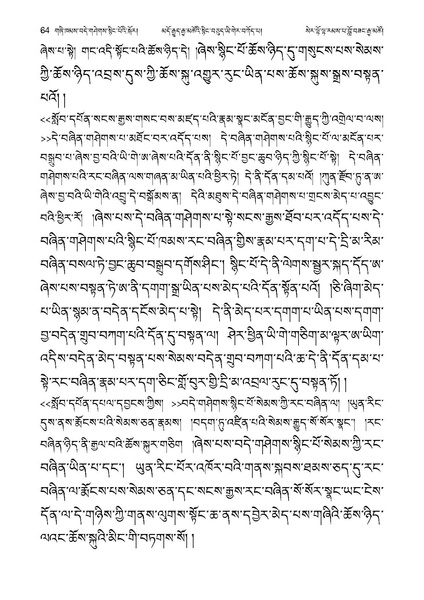 64 གཞི་ཁམས་བདེ་གཤེགས་སྙིང་པོའི་སྐོར། མདོ་རྒྱུད་རྒྱ་མཚོའི་སྙིང་བཅུད་ཡི་གེར་བཀོད་པ། སེར་
ཞེས་པ་སྟེ། གང་འདི་སྟོང་པའི་ཆོས་ཉིད་དེ། །ཞེས་སྙིང་པོ་ཆོས་ཉིད་དུ་གསུངས་པས་སེམས་
ཀྱི་ཆོས་ཉིད་འབྲས་དུས་ཀྱི་ཆོས་སྐུ་འགྱུར་རུང་ཡིན་པས་ཆོས་སྐུས་སྒྲས་བསྟན་
པའོ། །
<<སློབ་དཔོན་སངས་རྒྱས་གསང་བས་མཛད་པའི་རྣམ་སྣང་མངོན་བྱང་གི་རྒྱུད་ཀྱི་འགྲེལ་བ་ལས།
>>དེ་བཞིན་གཤེགས་པ་མཐོང་བར་འདོད་པས། དེ་བཞིན་གཤེགས་པའི་སྙིང་པོ་ལ་མངོན་པར་
བསྒྲུབ་པ་ཞེས་བྱ་བའི་ཡི་གེ་ཨ་ཞེས་པའི་དོན་ནི་སྙིང་པོ་བྱང་ཆུབ་ཉིད་ཀྱི་སྙིང་པོ་སྟེ། དེ་བཞིན་
གཤེགས་པའི་རང་བཞིན་ལས་གཞན་མ་ཡིན་པའི་ཕྱིར་ཏེ། དེ་ནི་དོན་དམ་པའོ། །ཀུན་རྫོབ་ཏུ་ན་ཨ་
ཞེས་བྱ་བའི་ཡི་གེའི་འབྲུ་དེ་བསྒོམས་ན། དེའི་མཐུས་དེ་བཞིན་གཤེགས་པ་གྲངས་མེད་པ་འབྱུང་
བའི་ཕྱིར་རོ། །ཞེས་པས་དེ་བཞིན་གཤེགས་པ་སྟེ་སངས་རྒྱས་ཐོབ་པར་འདོད་པས་དེ་
བཞིན་གཤེགས་པའི་སྙིང་པོ་ཁམས་རང་བཞིན་གྱིས་རྣམ་པར་དག་པ་དེ་དྲི་མ་རིམ་
བཞིན་བསལ་ཏེ་བྱང་ཆུབ་བསྒྲུབ་དགོས་ཤིང་། སྙིང་པོ་དེ་ནི་ལེགས་སྦྱར་སྐད་དོད་ཨ་
ཞེས་པས་བསྟན་ཏེ་ཨ་ནི་དགག་སྒྲ་ཡིན་པས་མེད་པའི་དོན་སྟོན་པའོ། །ཅི་ཞིག་མེད་
པ་ཡིན་སྙམ་ན་བདེན་དངོས་མེད་པ་སྟེ། དེ་ནི་མེད་པར་དགག་པ་ཡིན་པས་དགག་
བྱ་བདེན་གྲུབ་བཀག་པའི་དོན་དུ་བསྟན་ལ། ཤེར་ཕྱིན་ཡི་གེ་གཅིག་མ་ལྟར་ཨ་ཡིག་
འདིས་བདེན་མེད་བསྟན་པས་སེམས་བདེན་གྲུབ་བཀག་པའི་ཆ་དེ་ནི་དོན་དམ་པ་
སྟེ་རང་བཞིན་རྣམ་པར་དག་ཅིང་གློ་བུར་གྱི་དྲི་མ་འབྲལ་རུང་དུ་བསྟན་ཏོ། །
<<སློབ་དཔོན་དཔལ་དབྱངས་ཀྱིས། >>བདེ་གཤེགས་སྙིང་པོ་སེམས་ཀྱི་རང་བཞིན་ལ། །ཡུན་རིང་
དུས་ནས་རྨོངས་པའི་སེམས་ཅན་རྣམས། །བདག་ཏུ་འཛིན་པའི་སེམས་རྒྱུད་སོ་སོར་སྣང་། །རང་
བཞིན་ཉིད་ནི་རྒྱལ་བའི་ཆོས་སྐུར་གཅིག །ཞེས་པས་བདེ་གཤེགས་སྙིང་པོ་སེམས་ཀྱི་རང་
བཞིན་ཡིན་པ་དང་། ཡུན་རིང་པོར་འཁོར་བའི་གནས་སྐབས་ཐམས་ཅད་དུ་རང་
བཞིན་ལ་རྨོངས་པས་སེམས་ཅན་དང་སངས་རྒྱས་རང་བཞིན་སོ་སོར་སྣང་ཡང་ངེས་
དོན་ལ་དེ་གཉིས་ཀྱི་གནས་ལུགས་སྟོང་ཆ་ནས་དབྱེར་མེད་པས་གཞིའི་ཆོས་ཉིད་
ལའང་ཆོས་སྐུའི་མིང་གི་བཏགས་སོ། །